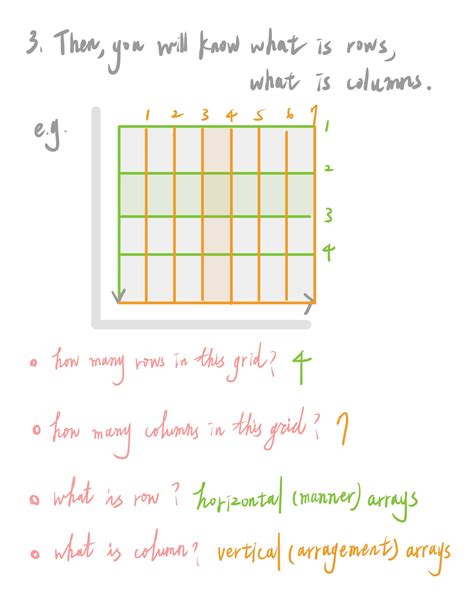 3. Then, you will know what is rows,
what is columns.
e.g.
1 2 3 4 5 6 7
1
2
3
4
how many rows in this grid? 4
how many columns in this grid? 7
what is row? horizontal (manner) arrays
what is column? vertical (arragement) arrays